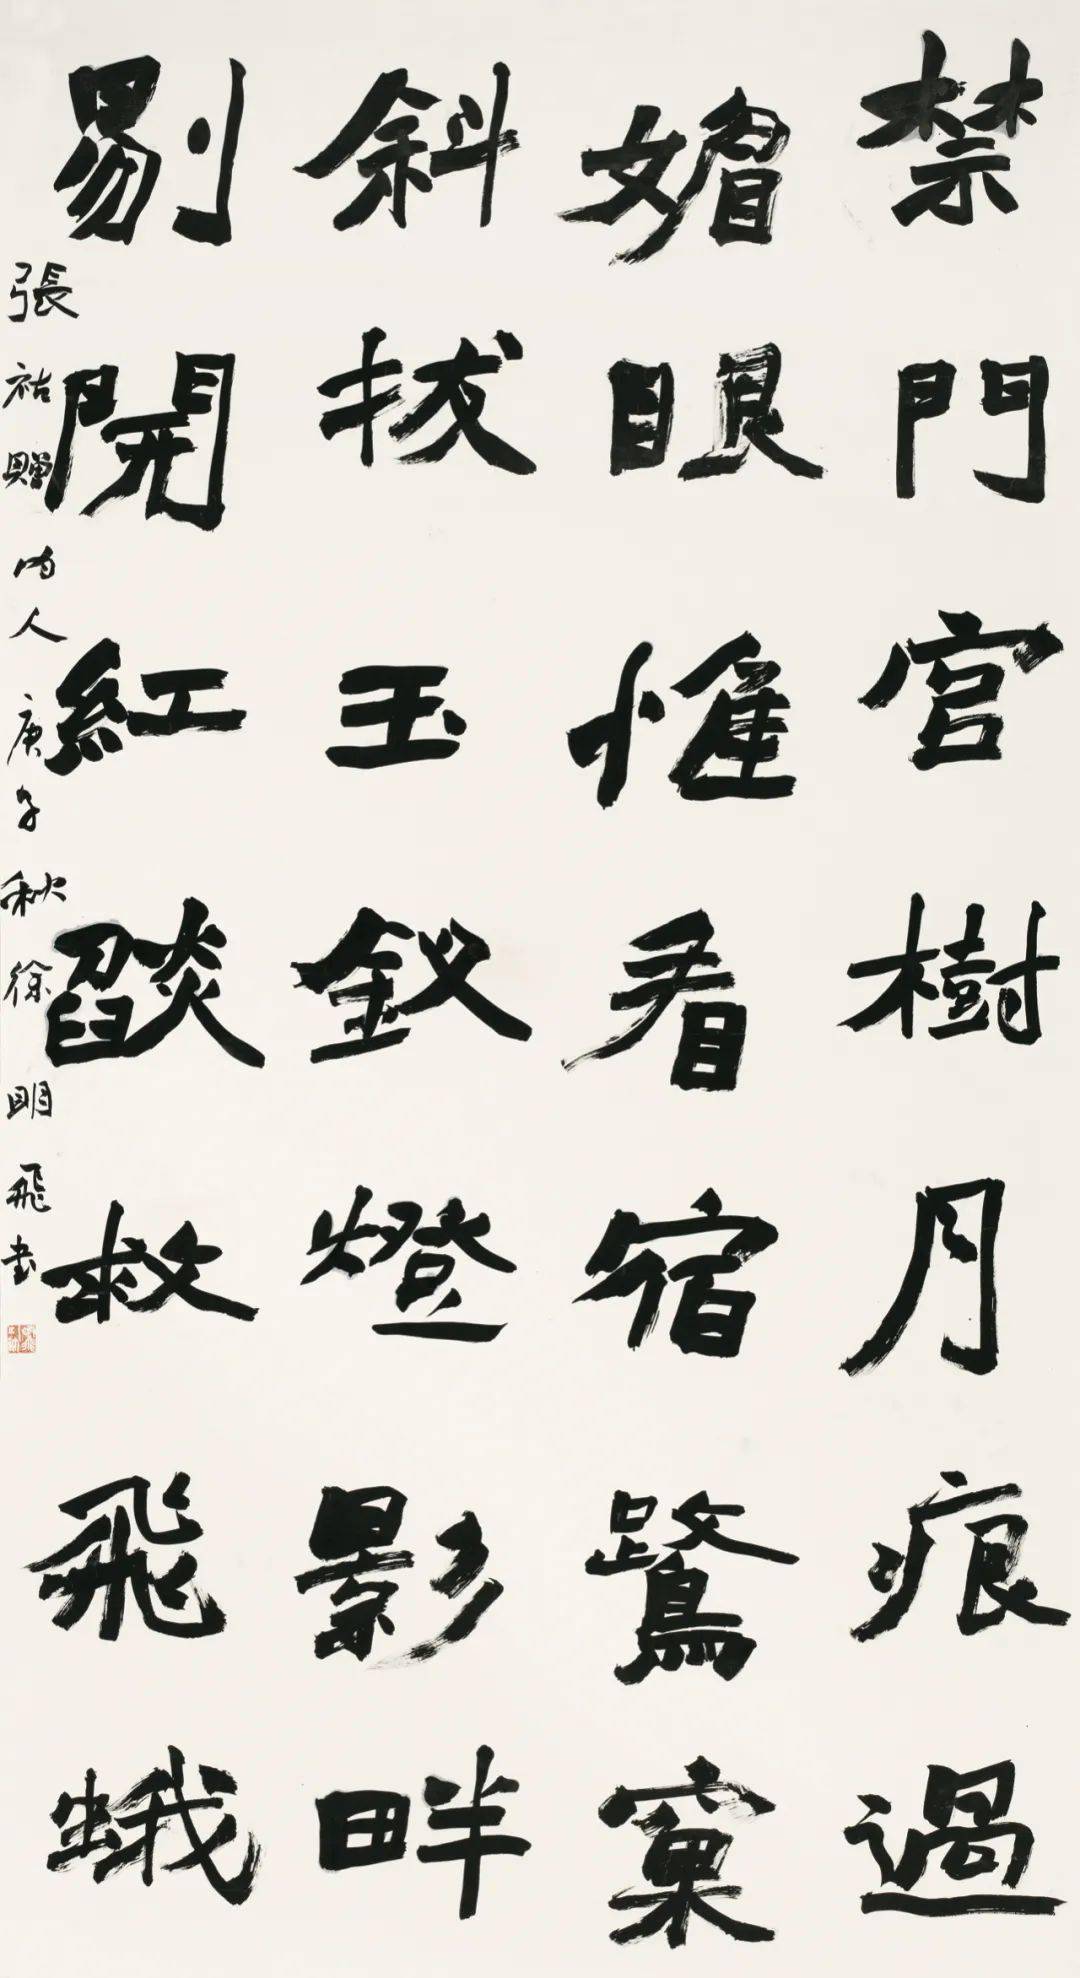 禁門宮樹月痕過
媚眼惟看宿鷺窠
斜拔玉釵燈影畔
剔開紅燄救飛蛾
張祜贈內人庚子秋徐明飛書